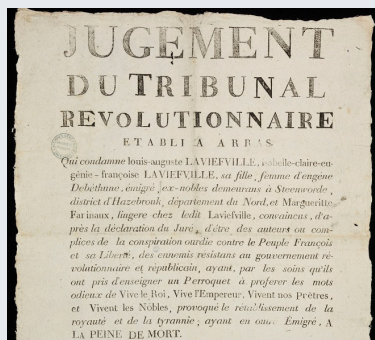 JUGEMENT
DU TRIBUNAL
REVOLUTIONNAIRE
ETABLI A ARRAS
Qui condamne louis-auguste LAVIEFVILLE, isabelle-claire-eu-
génie-françoise LAVIEFVILLE, sa fille, femme d'engene
Debéthune, émigré, ex-nobles demeurans à Steenworde,
district d'Hazebrouk, département du Nord, et Margueritte
Farinaux, lingere chez ledit Laviefville, convaincus, d'a-
près la déclaration du Juré, d'être des auteurs ou com-
plices de la conspiration ourdie contre le Peuple François
et sa Liberté, des ennemis résistans au gouvernement ré-
volutionnaire et républicain, ayant, par les soins qu'ils
ont pris d'enseigner un Perroquet à proferer les mots
odieux de Vive le Roi, Vive l'Empereur, Vivent nos Prêtres,
et Vivent les Nobles, provoqué le rétablissement de la
royauté et de la tyrannie; ayant en outre Émigré, A
LA PEINE DE MORT.